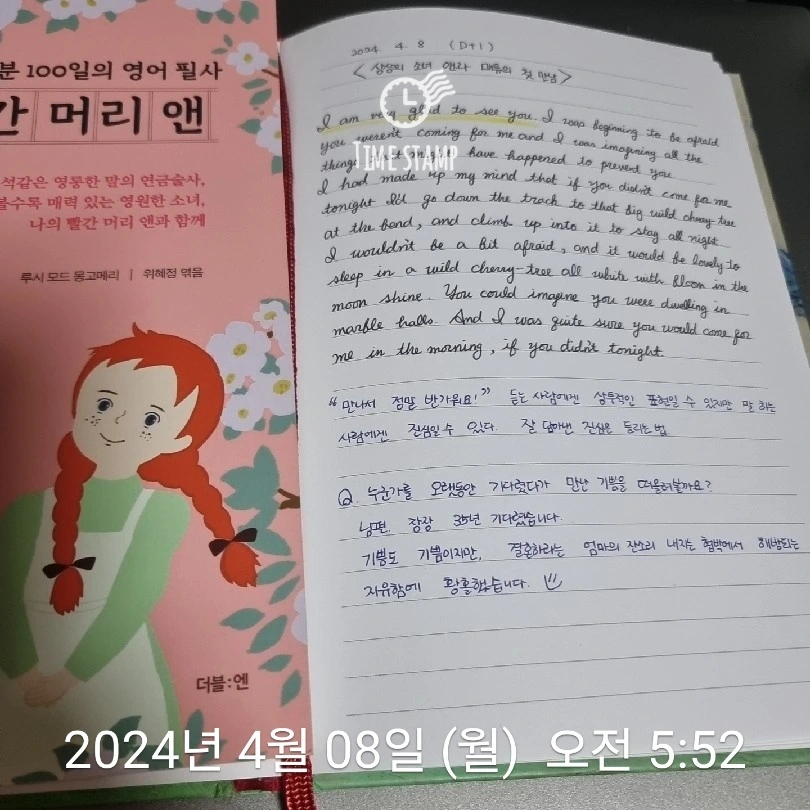 분 100일의 영어 필사
간 머리 앤
석같은 영롱한 말의 연금술사,
볼수록 매력 있는 영원한 소녀,
나의 빨간 머리 앤과 함께
루시 모드 몽고메리 | 위혜정 엮음
더블:엔
2024. 4. 8 (D+1)
<상상의 소녀 앤과 매튜의 첫 만남>
I am very glad to see you. I was beginning to be afraid
you weren't coming for me and I was imagining all the
things that might have happened to prevent you.
I had made up my mind that if you didn't come for me
tonight I'd go down the track to that big wild cherry-tree
at the bend, and climb up into it to stay all night.
I wouldn't be a bit afraid, and it would be lovely to
sleep in a wild cherry-tree all white with bloom in the
moon shine. You could imagine you were dwelling in
marble halls. And I was quite sure you would come for
me in the morning, if you didn't tonight.
"만나서 정말 반가워요!" 듣는 사람에겐 상투적인 표현일 수 있지만 말 하는
사람에겐 진심일 수 있다. 잘 담아낸 진심은 들리는 법
Q. 누군가를 오랫동안 기다렸다가 만난 기쁨을 떠올려볼까요?
남편. 장장 35년 기다렸습니다.
기쁨도 기쁨이지만, 결혼하라는 엄마의 잔소리 내지는 협박에서 해방되는
자유함에 황홀했습니다.
TIME STAMP
2024년 4월 08일 (월) 오전 5:52